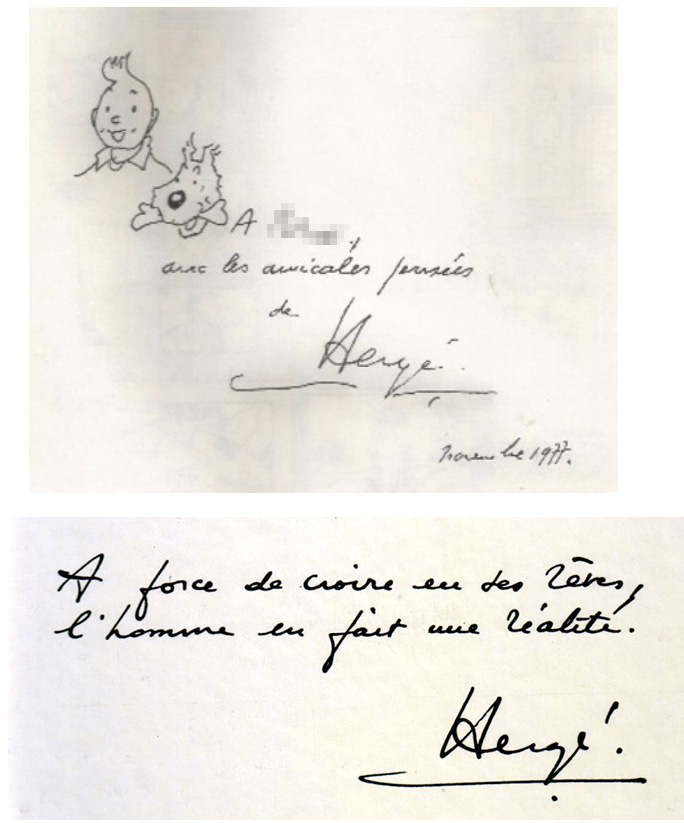 A
avec les amicales pensées
de
Hergé.
novembre 1977.
A force de croire en ses rêves,
l'homme en fait une réalité.
Hergé.